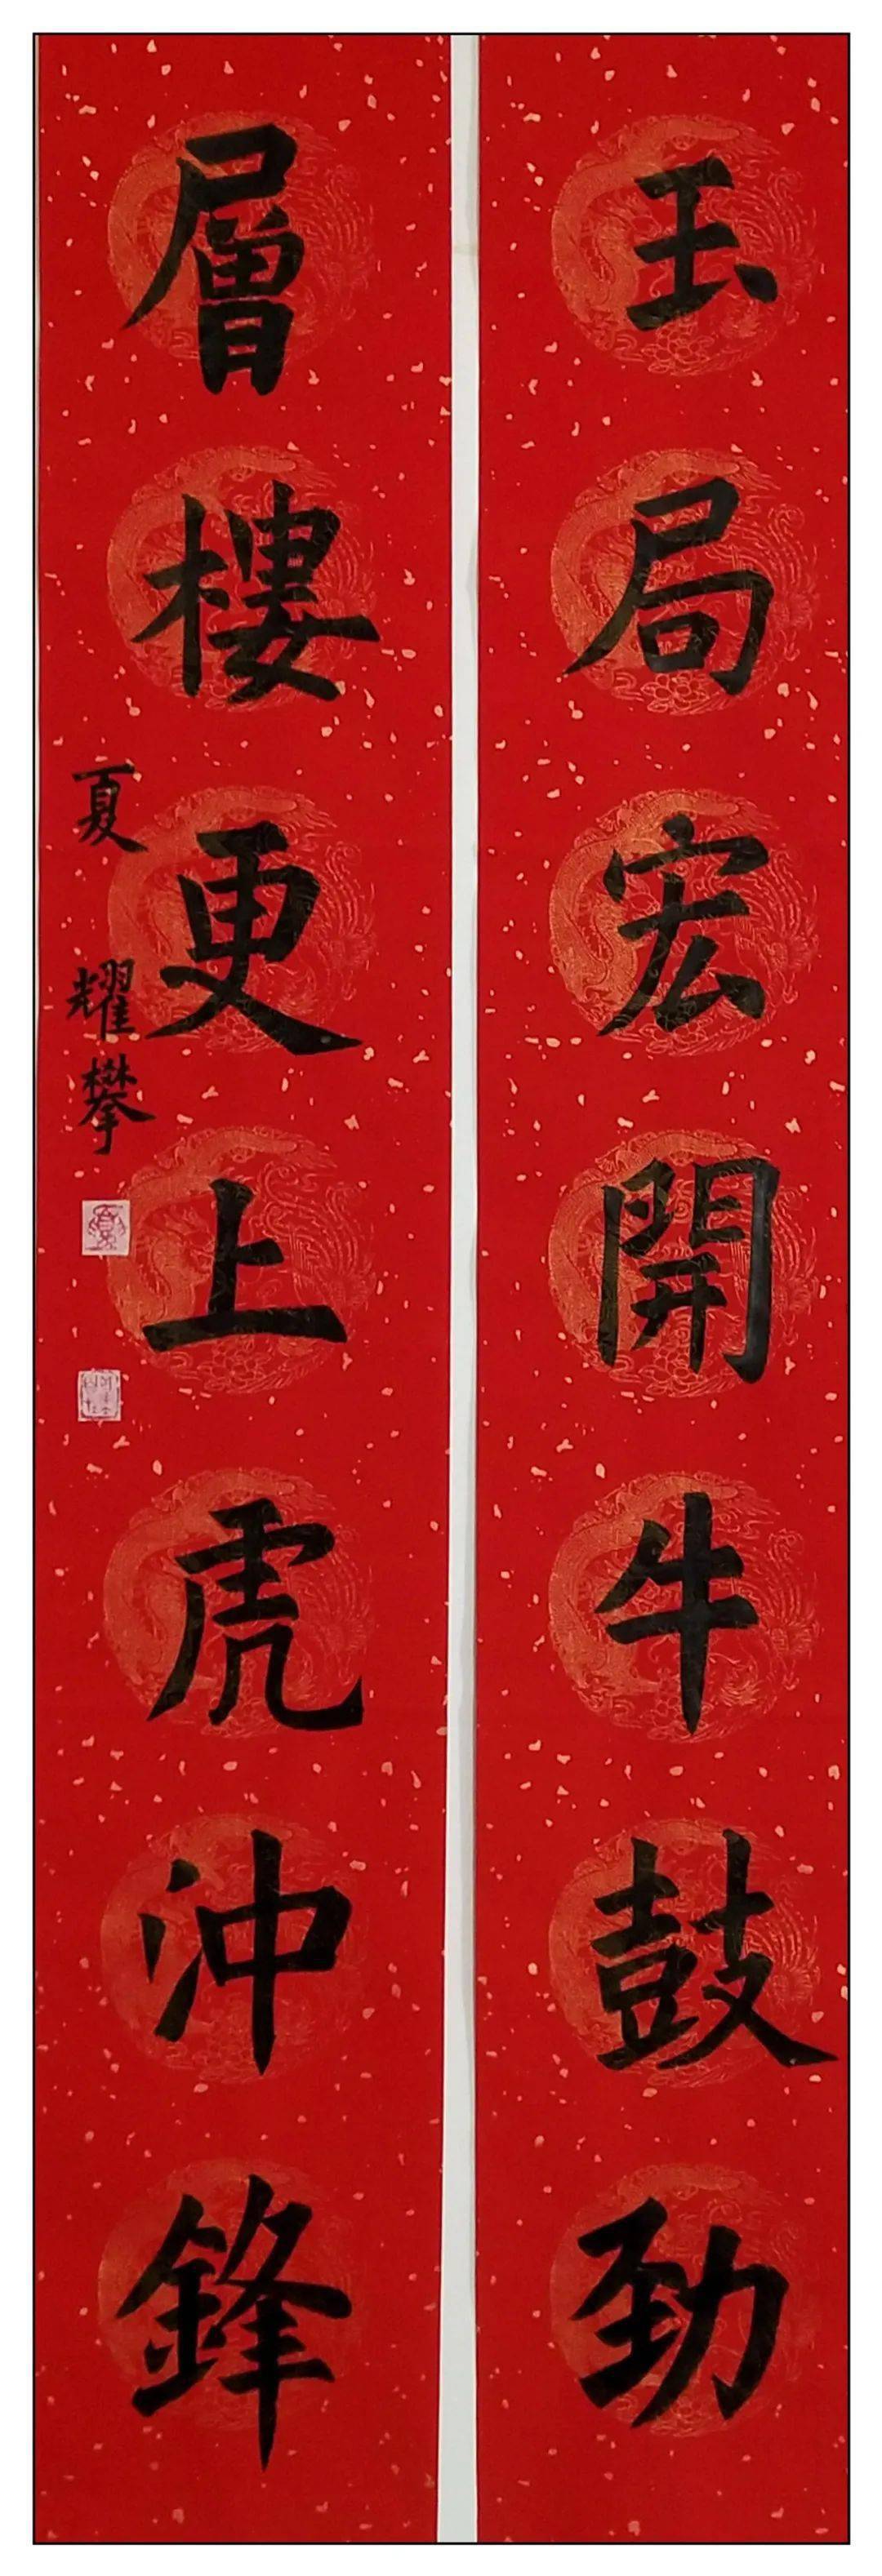 玉局宏開牛鼓勁
層樓更上虎沖鋒
夏耀攀